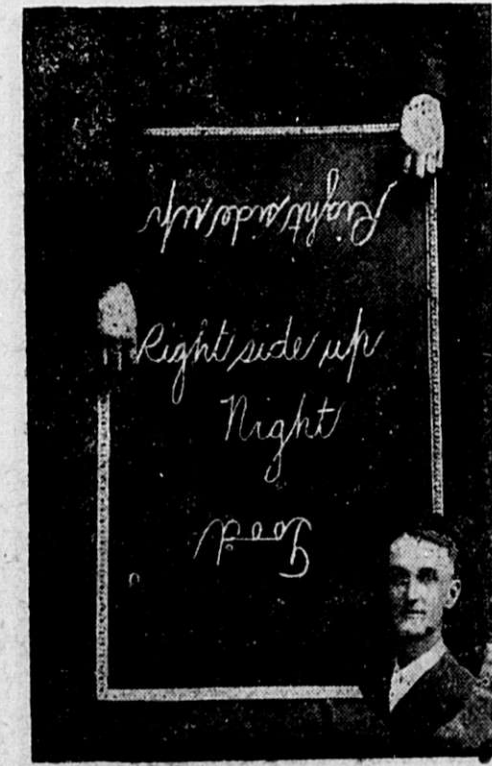 Right side up
Right side up
Night
Good